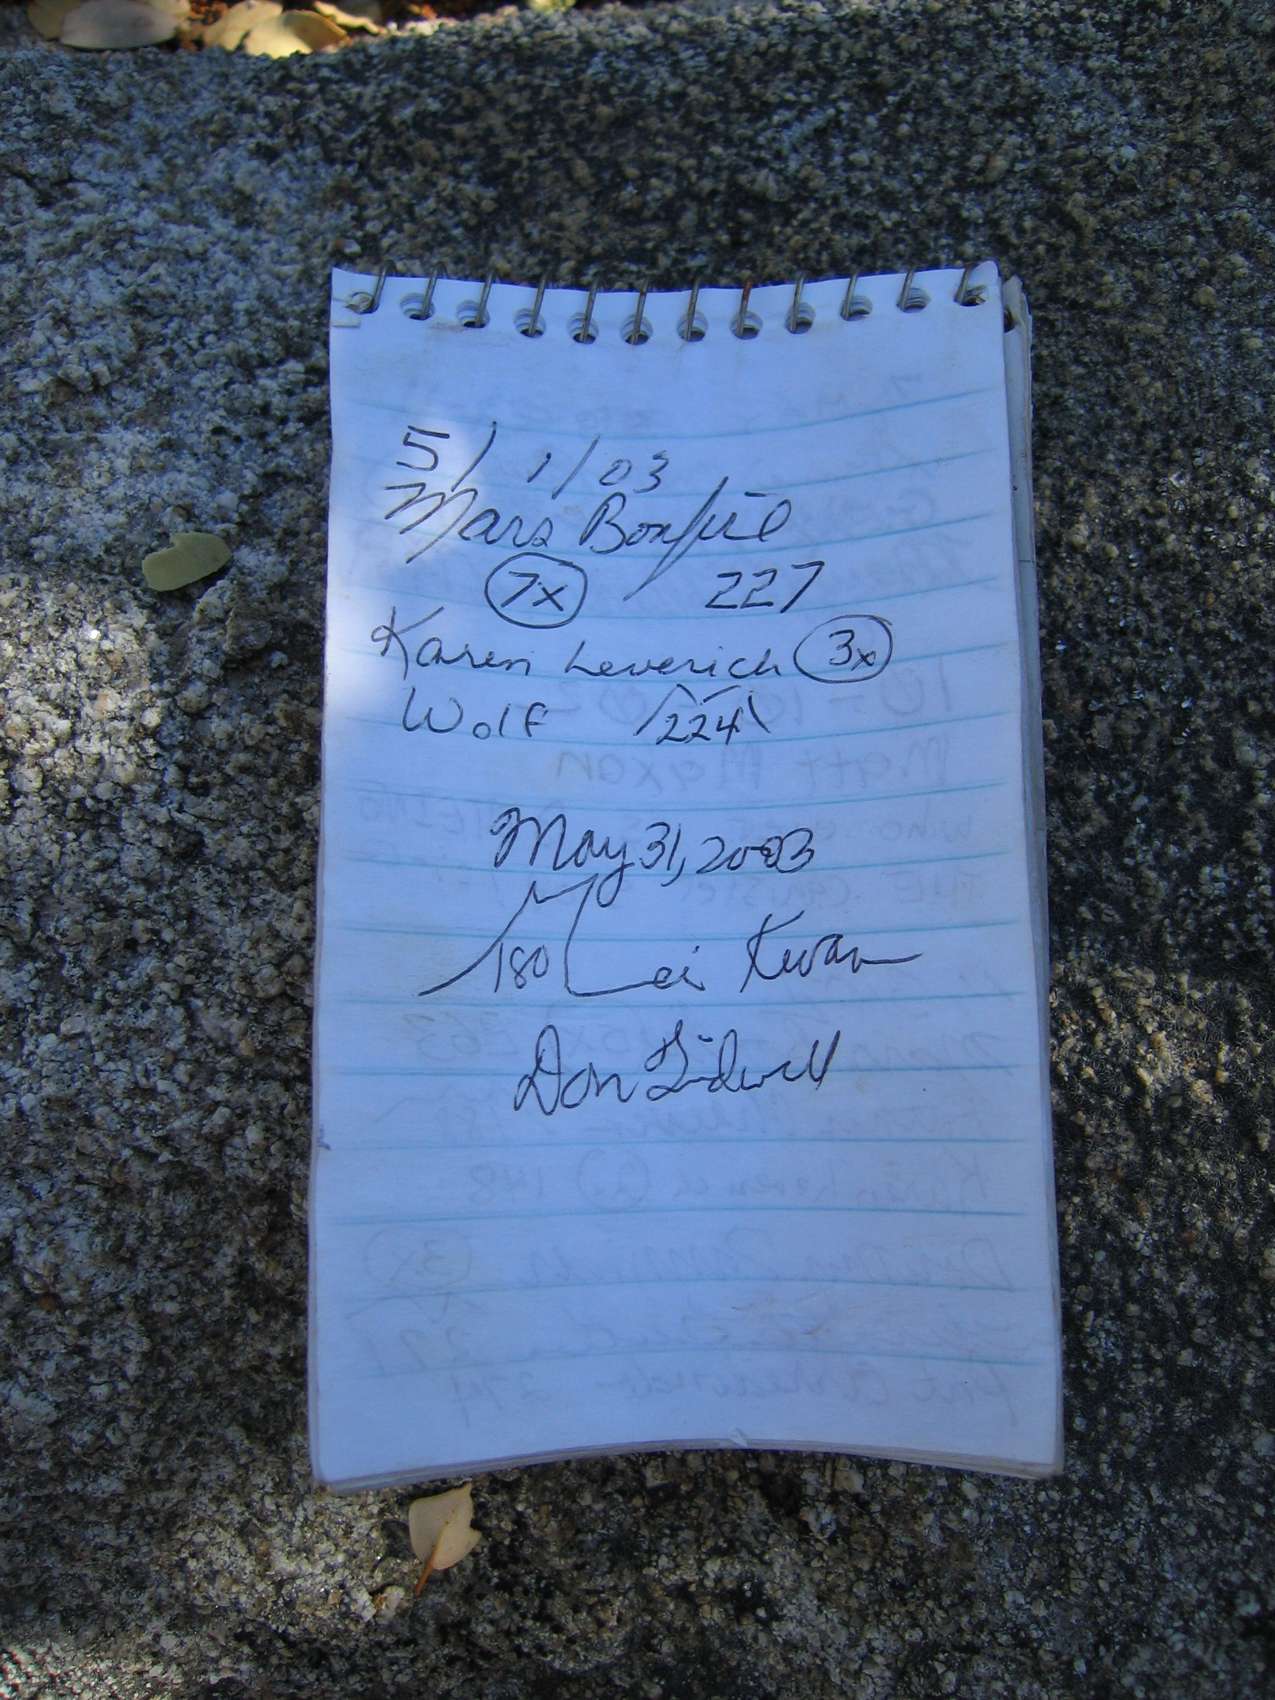 5/1/03
Mars Bonfire
7x 227
Karen Leverich 3x
Wolf 224
May 31, 2003
180 Lei Kwan
Don Tidwell